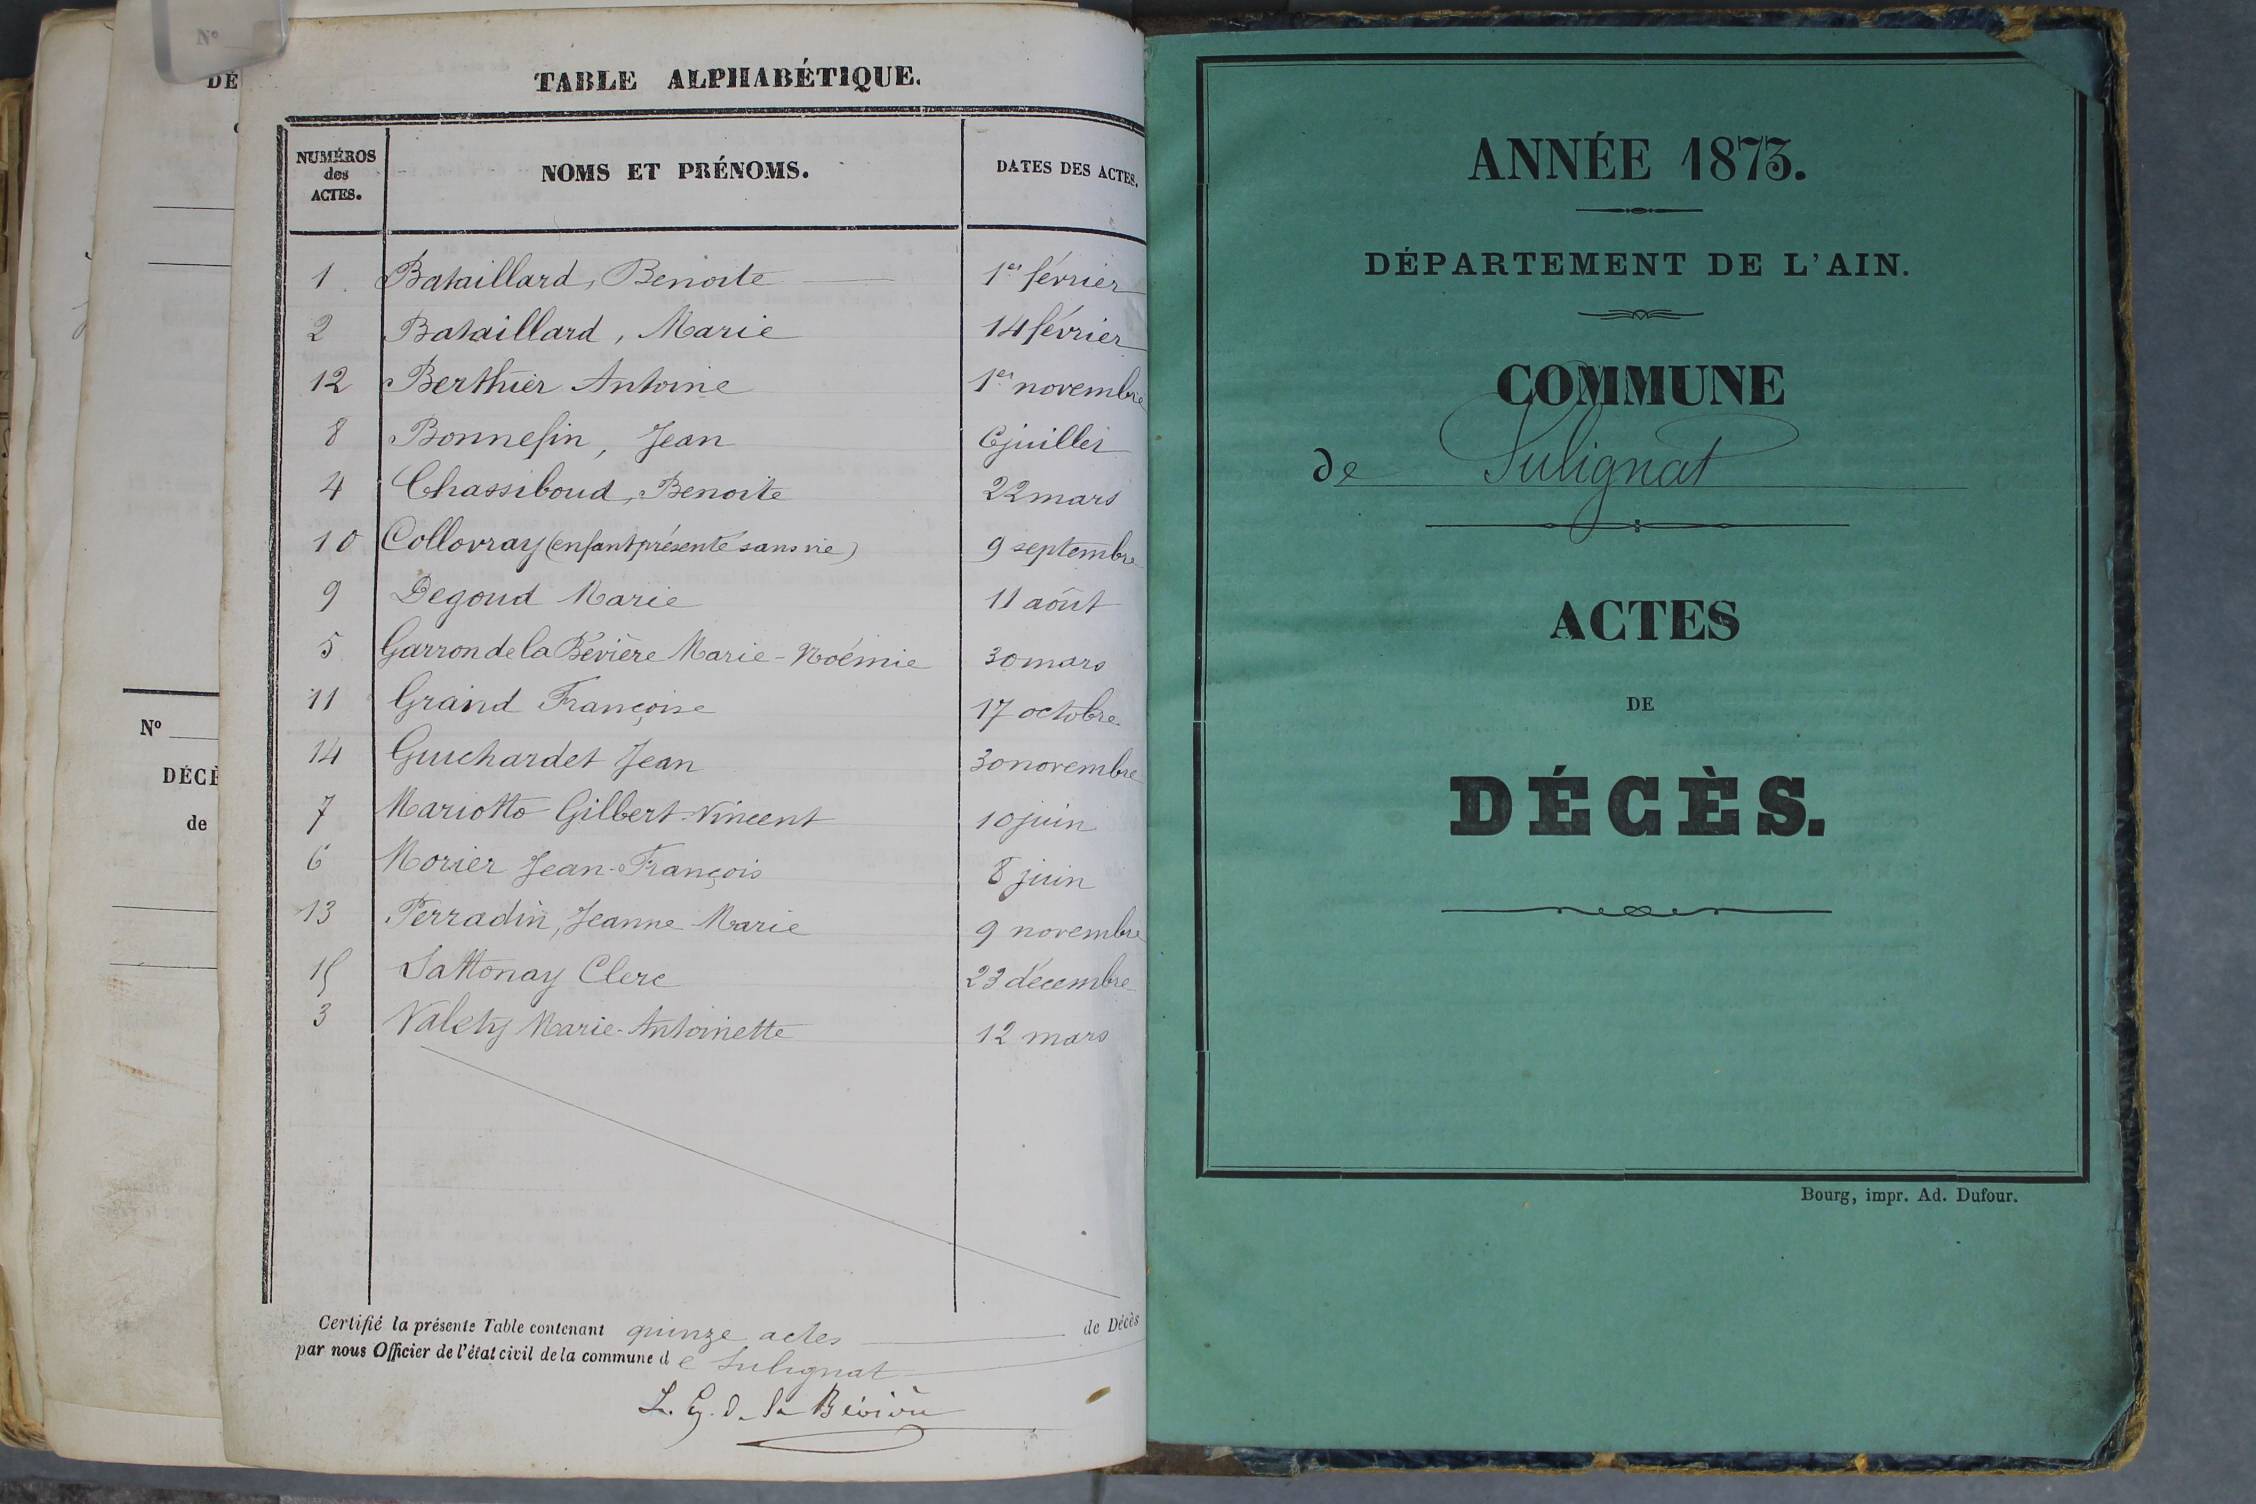 N°
DÉ
N°
DÉCÈ
de
TABLE ALPHABÉTIQUE.
NUMÉROS des ACTES.
NOMS ET PRÉNOMS.
DATES DES ACTES.
1 Bataillard, Benoite 1er février
2 Bataillard, Marie 14 février
12 Berthier Antoine 1er novembre
8 Bonnefin, Jean 6 juillet
4 Chassiboud, Benoite 22 mars
10 Collovray (enfant présenté sans vie) 9 septembre
9 Degoud Marie 11 août
5 Garron de la Bévière Marie-Noémie 30 mars
11 Grand Françoise 17 octobre
14 Guichardet Jean 30 novembre
7 Mariotto Gilbert-Vincent 10 juin
6 Morier Jean-François 8 juin
13 Perradin, Jeanne Marie 9 novembre
15 Sattonay Clerc 23 décembre
3 Valety Marie-Antoinette 12 mars
Certifié la présente Table contenant quinze actes de Décès
par nous Officier de l'état civil de la commune de Sulignat
L. G. de la Bévière
ANNÉE 1873.
DÉPARTEMENT DE L'AIN.
COMMUNE
de Sulignat
ACTES
DE
DÉCÈS.
Bourg, impr. Ad. Dufour.